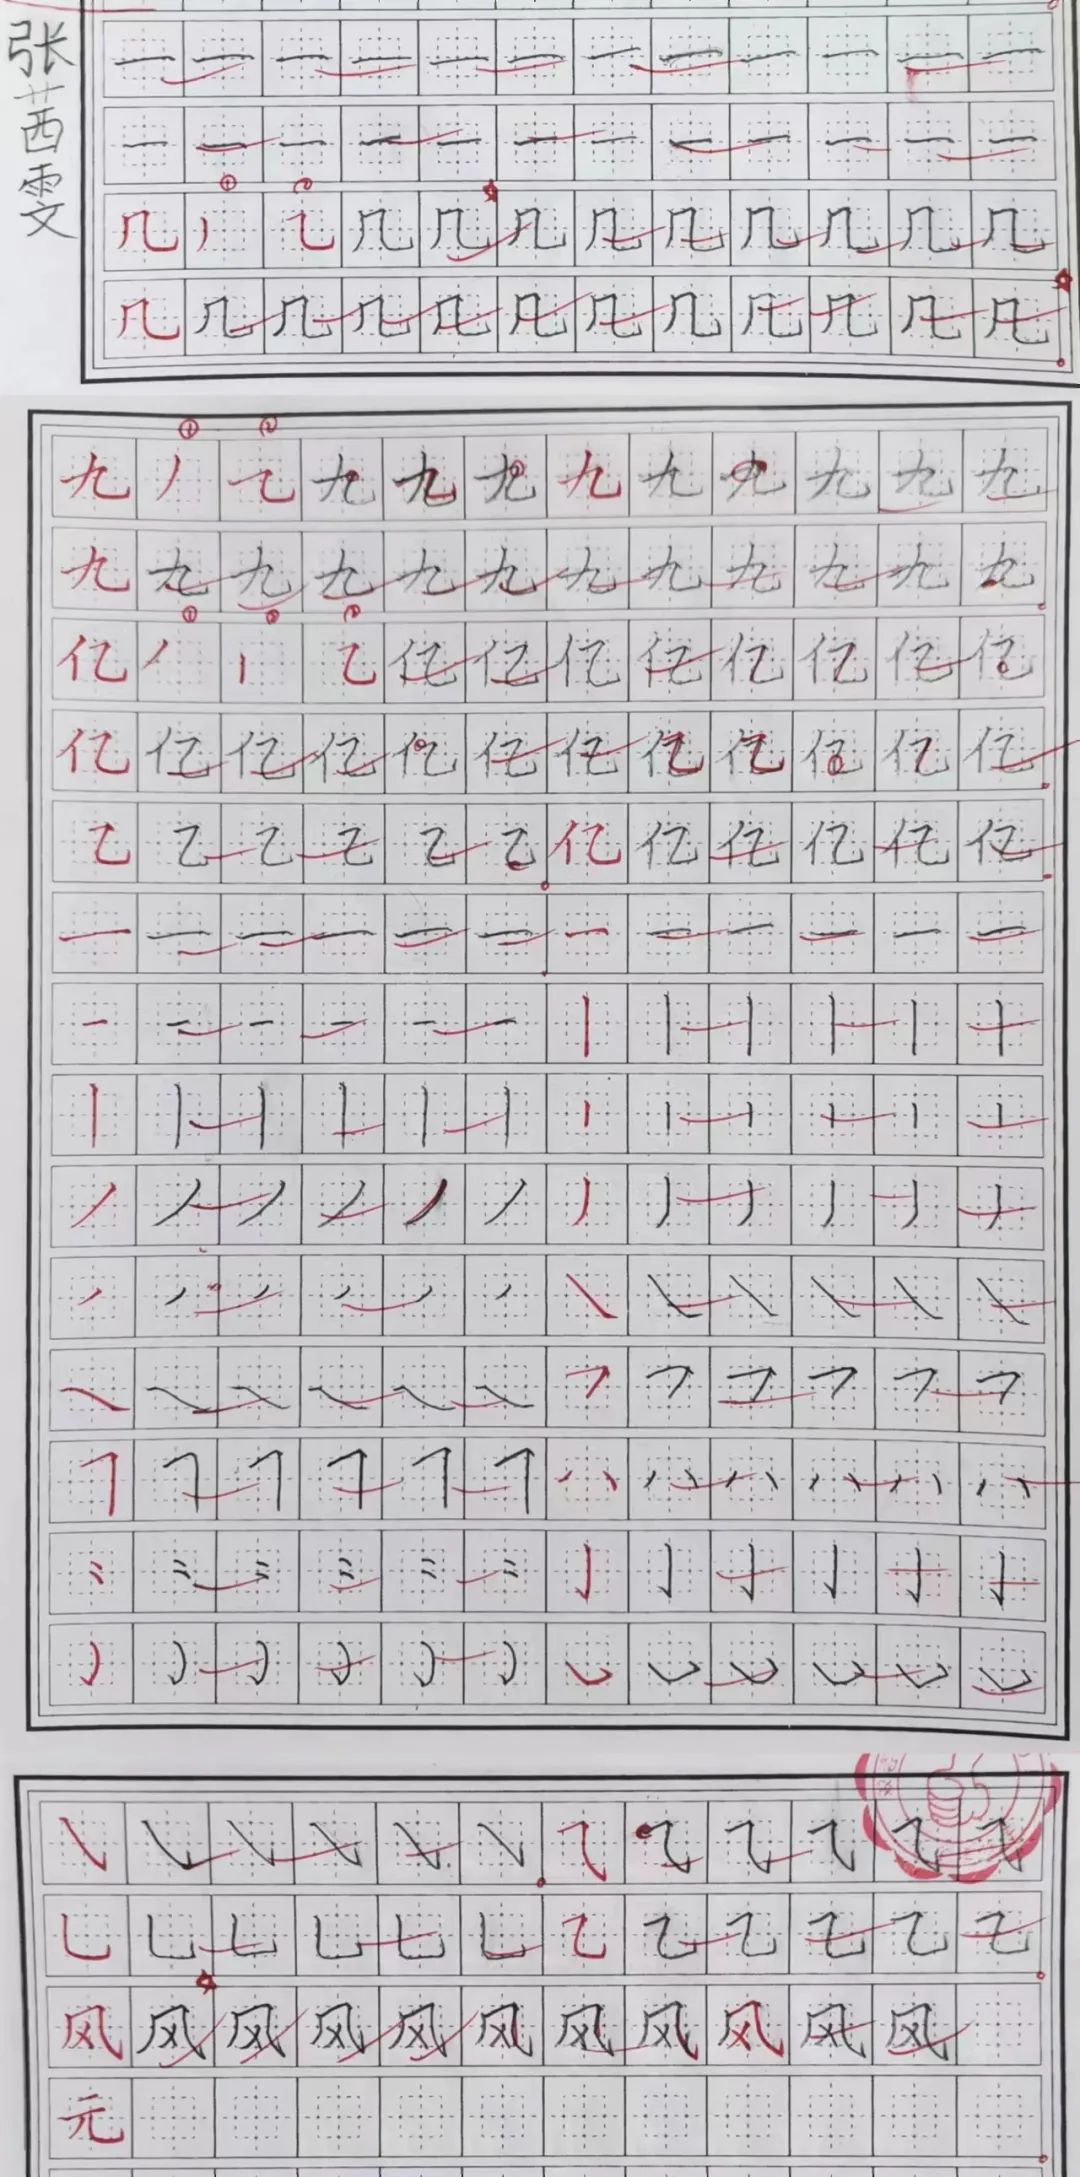 张茜雯
一一一一一一一一一一一一
一一一一一一一一一一一一
① ②
几丿乁几几几几几几几几几
几几几几几几几几几几几几
① ②
九丿乙九九九九九九九九九
九九九九九九九九九九九九
① ② ③
亿丿丨乙亿亿亿亿亿亿亿亿
亿亿亿亿亿亿亿亿亿亿亿亿
乙乙乙乙乙乙亿亿亿亿亿亿
一一一一一一一一一一一一
一一一一一一丨丨丨丨丨丨
丨丨丨丨丨丨丨丨丨丨丨丨
丿丿丿丿丿丿丿丿丿丿丿丿
乚乚乚乚乚乚乙乙乙乙乙乙
风风风风风风风风风风风
元